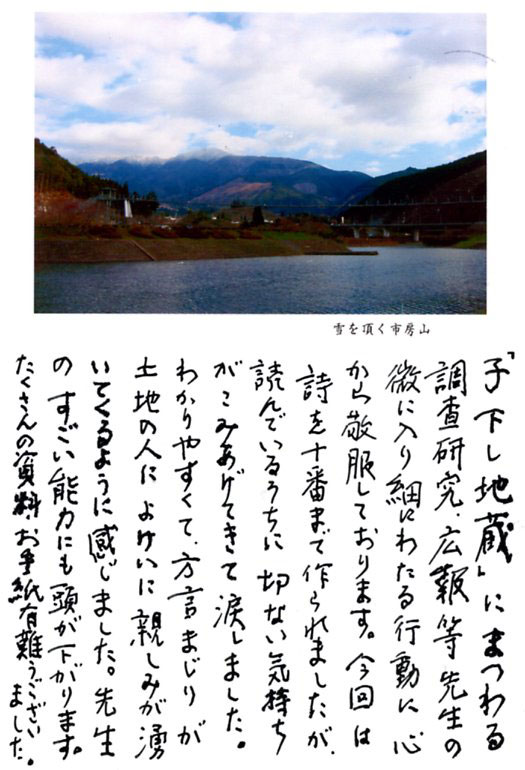 雪を頂く市房山
「子下し地蔵」にまつわる
調査研究、広報等先生の
微に入り細にわたる行動に心
から敬服しております。今回は
詩を十番まで作られましたが、
読んでいるうちに切ない気持ち
がこみあげてきて涙しました。
わかりやすくて、方言まじりが
土地の人によけいに親しみが湧
いてくるように感じました。先生
のすごい能力にも頭が下がります。
たくさんの資料、お手紙有難うござい
ました。